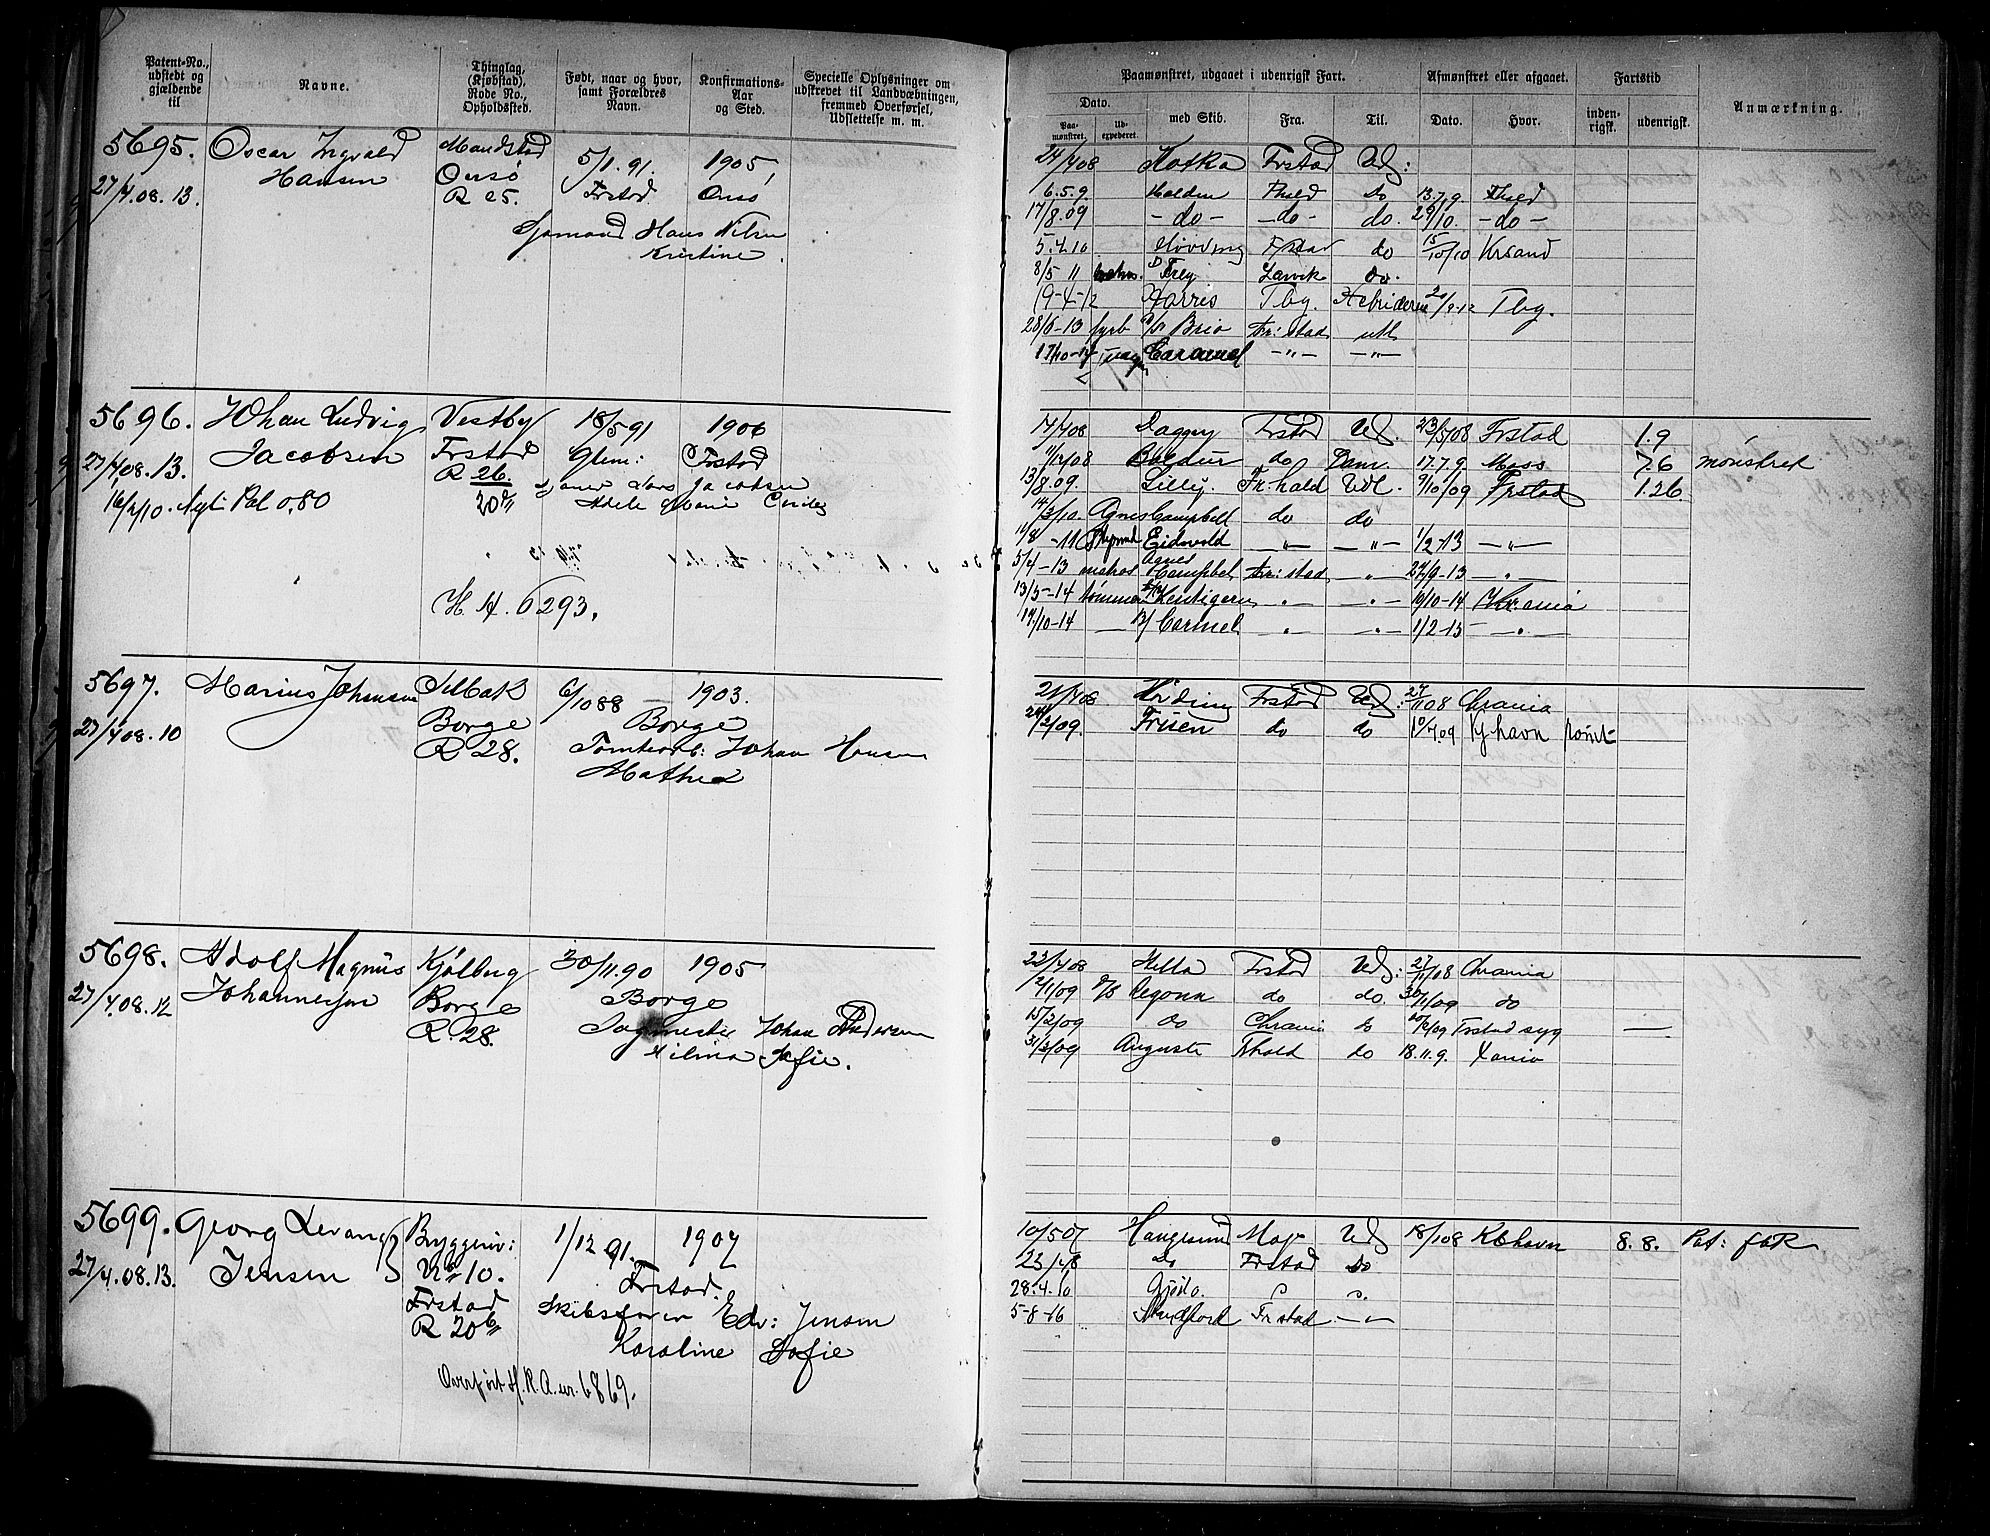 Patent-No., udstedt og gjældende til
Navne.
Thinglag, (Kjøbstad), Rode No., Opholdssted.
Født, naar og hvor, samt Forældres Navn.
Konfirmations-Aar og Sted.
Specielle Oplysninger om udskrevet til Landvæbningen, fremmed Overførsel, Udslettelse m. m.
Paamønstret, udgaaet i udenrigsk Fart.
Afmønstret eller afgaaet.
Fartstid
Anmærkning.
Dato.
Paa-mønstret.
Ud-expederet.
med Skib.
Fra.
Til.
Dato.
Hvor.
inden-rigsk.
udenrigsk.
5695. Oscar Ingvald
Hansen
27/4.08. 13.
Onsø
R 25.
5/1. 91. 1905,
Frstad. Onsø
Hans Nilsen
Kristine.
24/4 08 Kotka Frstad Ud:
6.5.9. Halden Fhald do 13.7.9. Fhald
17/8.09 - do - - do - do. 29/10. - do -
5.4.10 Frstad do 15/10/10 Krsand
8/5 11 Frey. Larvik do.
19-4-12 Harris Tbg. Hebriderne 20/9-12 Tbg.
28/6-13 fyrb D/S Brio Fr:stad utl
17/10-14 Carmel -"- -"-
5696. Johan Ludvig
Jacobsen
27/4.08. 13.
16/2/10. Nyt Pat 0,80
Vestby
Frstad
R 26.
18/5 91 1906
Glem: Frstad
Lars Jacobsen
Adele Marie
H A. 6293.
14/4 08 Frstad Ud. 23/5/08 Frstad 1.9
11/12 08 Baldur do Danm. 17.7.9. Moss 7.6 mønstret
13/8.09. Lilly. Fr:hald Udl. 9/10/09 Frstad 1.26
14/3/10. Agnes Campbell do do
11/8 -11 Eidsvold -"- -"- 1/2-13 -"-
5/4-13 matros Agnes Campbel Fr:stad -"- 27/9-13 -"-
13/3-14 tømmerm Kentigern -"- -"- 10/10-14 Kr.ania
17/10-14 - B/ Carmel -"- -"- 1/2-15 -"-
5697. Marius Johansen
27/4 08. 10
Selbak
Borge
R 28.
6/10 88 - 1903.
Borge
Tomtearb: Johan Hansen
Mathea
21/4 08 Frstad Ud. 27/11 08 Chrania
24/2/09. Frisen do do 10/4.09 Kjhavn rømt
5698. Adolf Magnus
Johannesen
27/4.08. 12
Kjølberg
Borge
R. 28.
30/11.90 1905
Borge
Sagmester Johan Andersen
Milina Sofie.
23/4 08 Hilla Frstad Ud: 27/11/08 Chrania
12/1/09 S/S Regona do do. 30/1/09 do
15/2/09 do Chrania do Frstad syg
31/3/09 Auguste Fhald do 18.11.9. Xania
5699. Georg Levang
Jensen
27/4.08. 13.
Bryggeriv:
No 10.
Frstad
R 20b
1/12 91. 1907
Frstad.
Skibsfører Edv: Jensen
Karoline Sofie
Overført H. R. A. nr. 6869.
10/5 07 Haugesund Ud 18/1 08 Kbhavn 8. 8. Pat:
23/4 8 do Frstad do
28.4.10
5-8-16 Frstad -"-